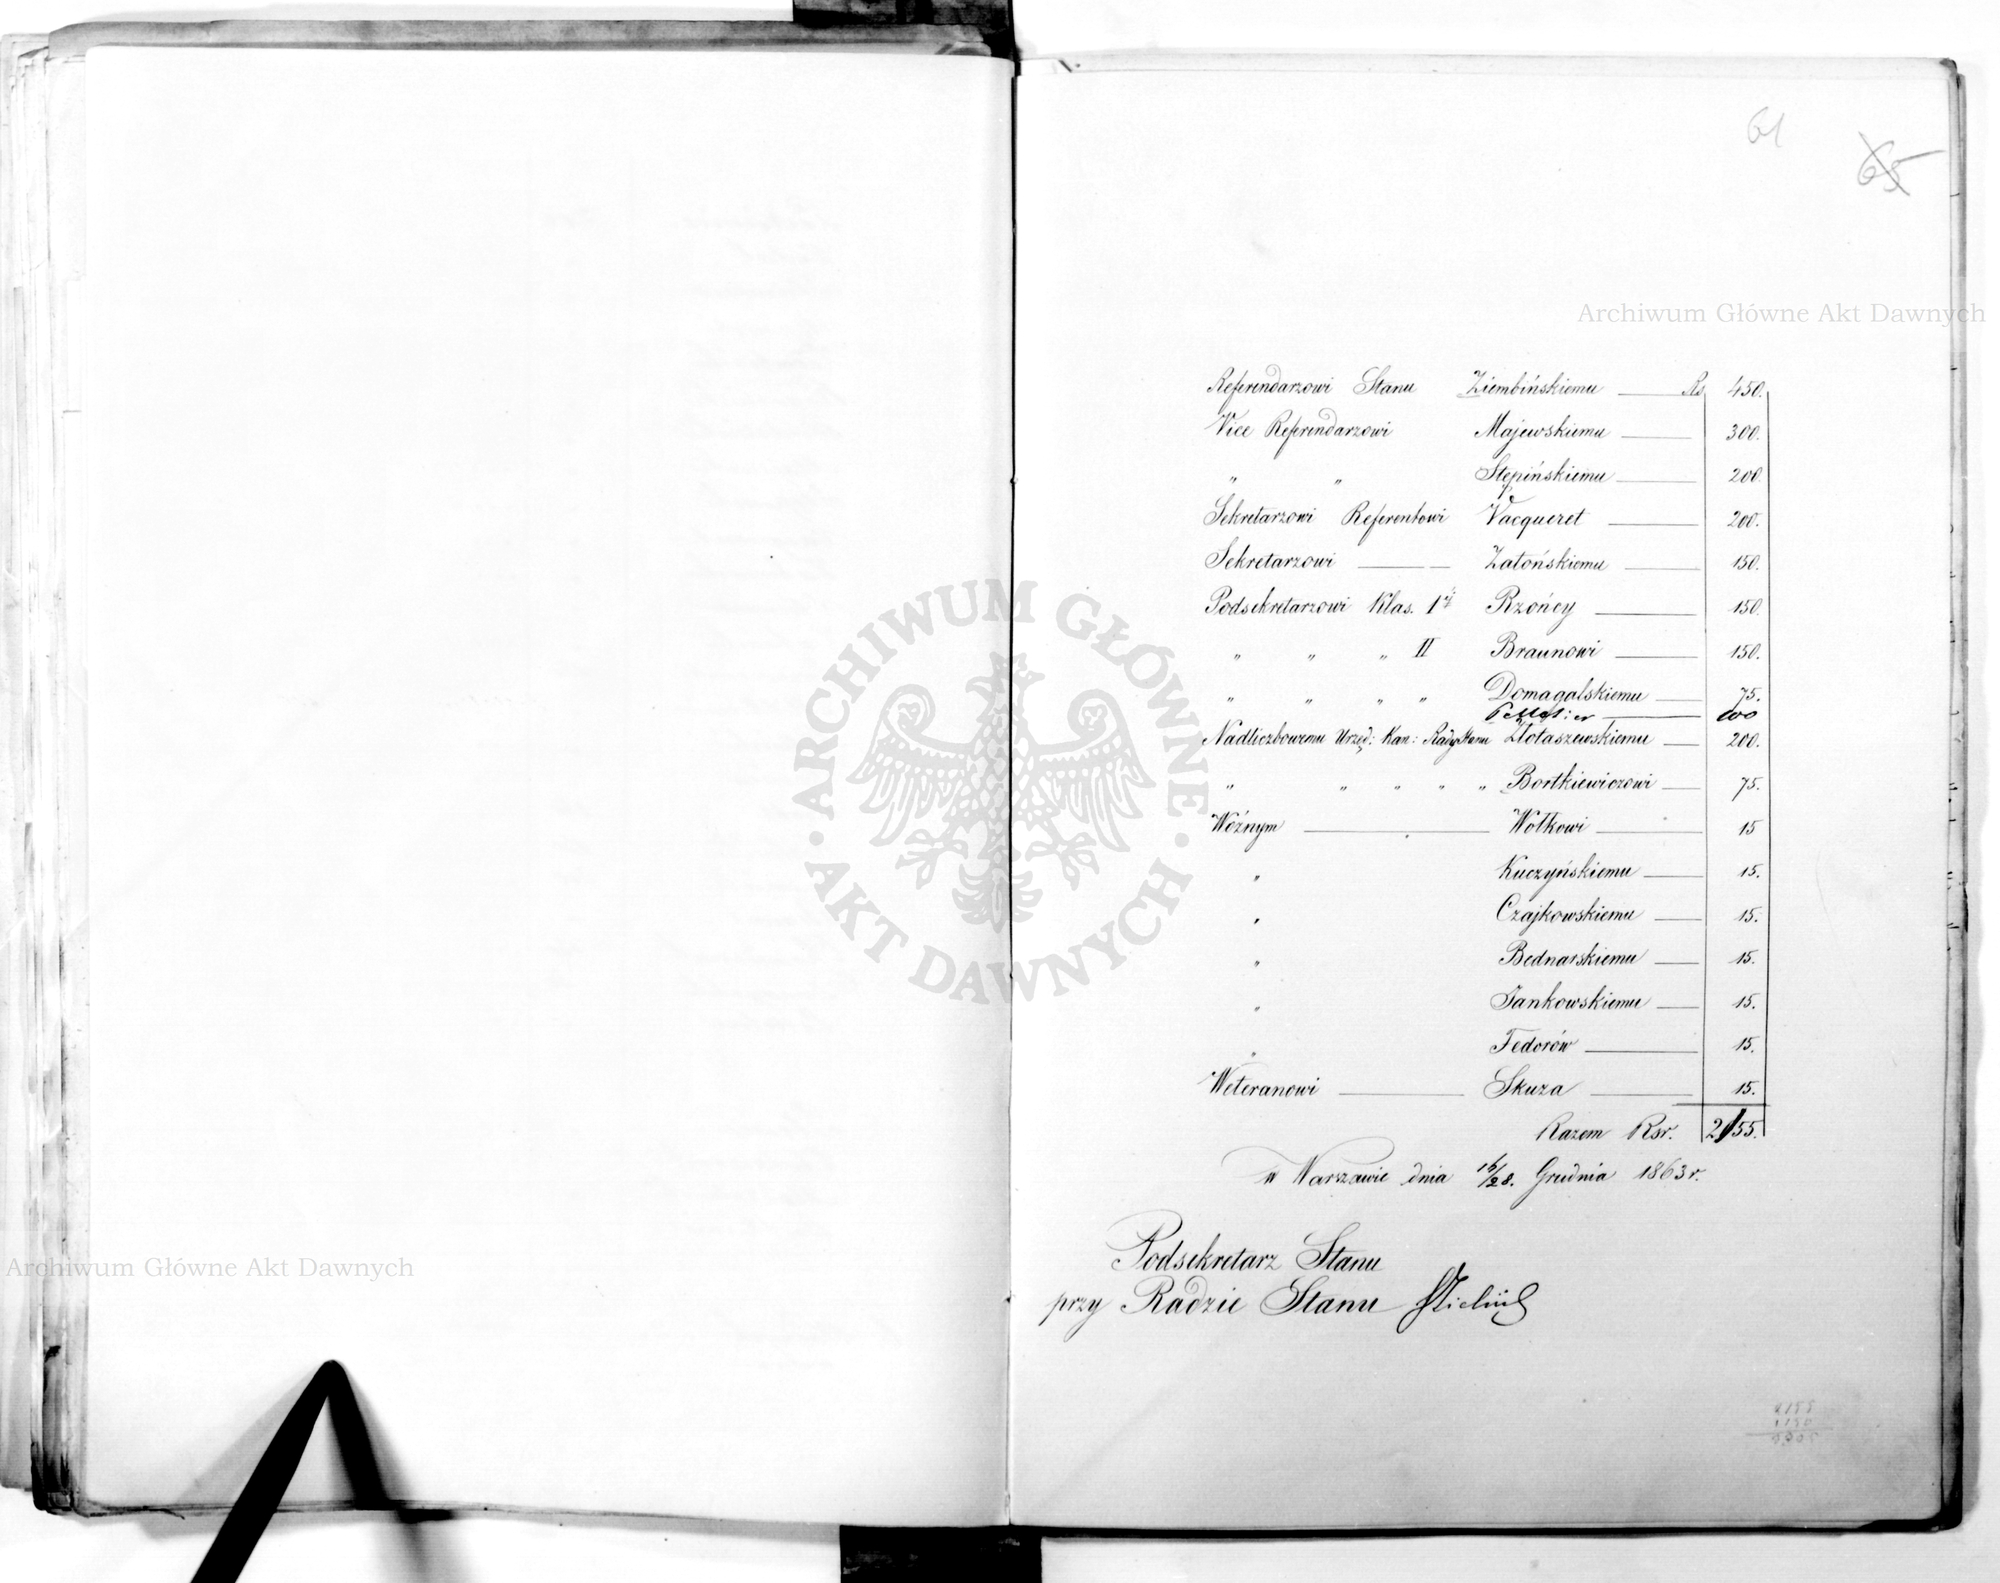 61
65
Archiwum Główne Akt Dawnych
Referendarzowi Stanu Ziembińskiemu Rs 450.
Vice Referendarzowi Majewskiemu 300.
" " Stępińskiemu 200.
Sekretarzowi Referentowi Vacqueret 200.
Sekretarzowi Zatońskiemu 150.
Podsekretarzowi Klas. 1ej Rzońcy 150.
" " " II Braunowi 150.
" " " " Domagalskiemu 75.
100
Nadliczbowemu Urzęd: Kan: Rady Stanu Złotaszewskiemu 200.
" " " " " Bortkiewiczowi 75.
Woźnym Wołkowi 15
" Kuczyńskiemu 15.
" Czajkowskiemu 15.
" Bednarskiemu 15.
" Jankowskiemu 15.
" Fedorów 15.
Weteranowi Skuza 15.
Razem Rsr. 2155.
w Warszawie dnia 16/28. Grudnia 1863 r.
Podsekretarz Stanu
przy Radzie Stanu
ARCHIWUM GŁÓWNE
AKT DAWNYCH
Archiwum Główne Akt Dawnych